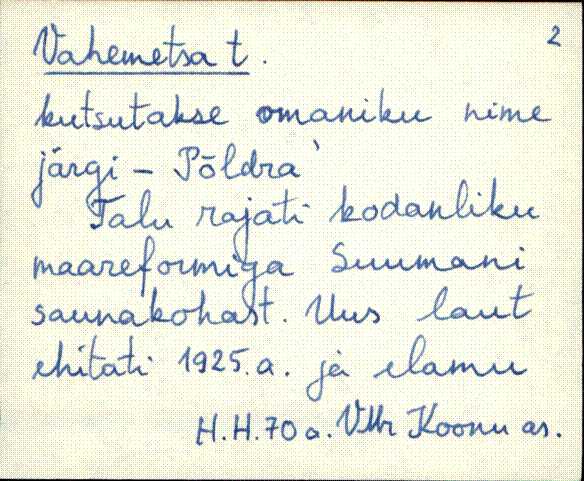 2
Vahemetsa t.
kutsutakse omaniku nime
järgi – Põldra`
Talu rajati kodanliku
maareformiga Suumani
saunakohast. Uus laut
ehitati 1925.a. ja elamu
H.H.70a. VMr Koonu as.